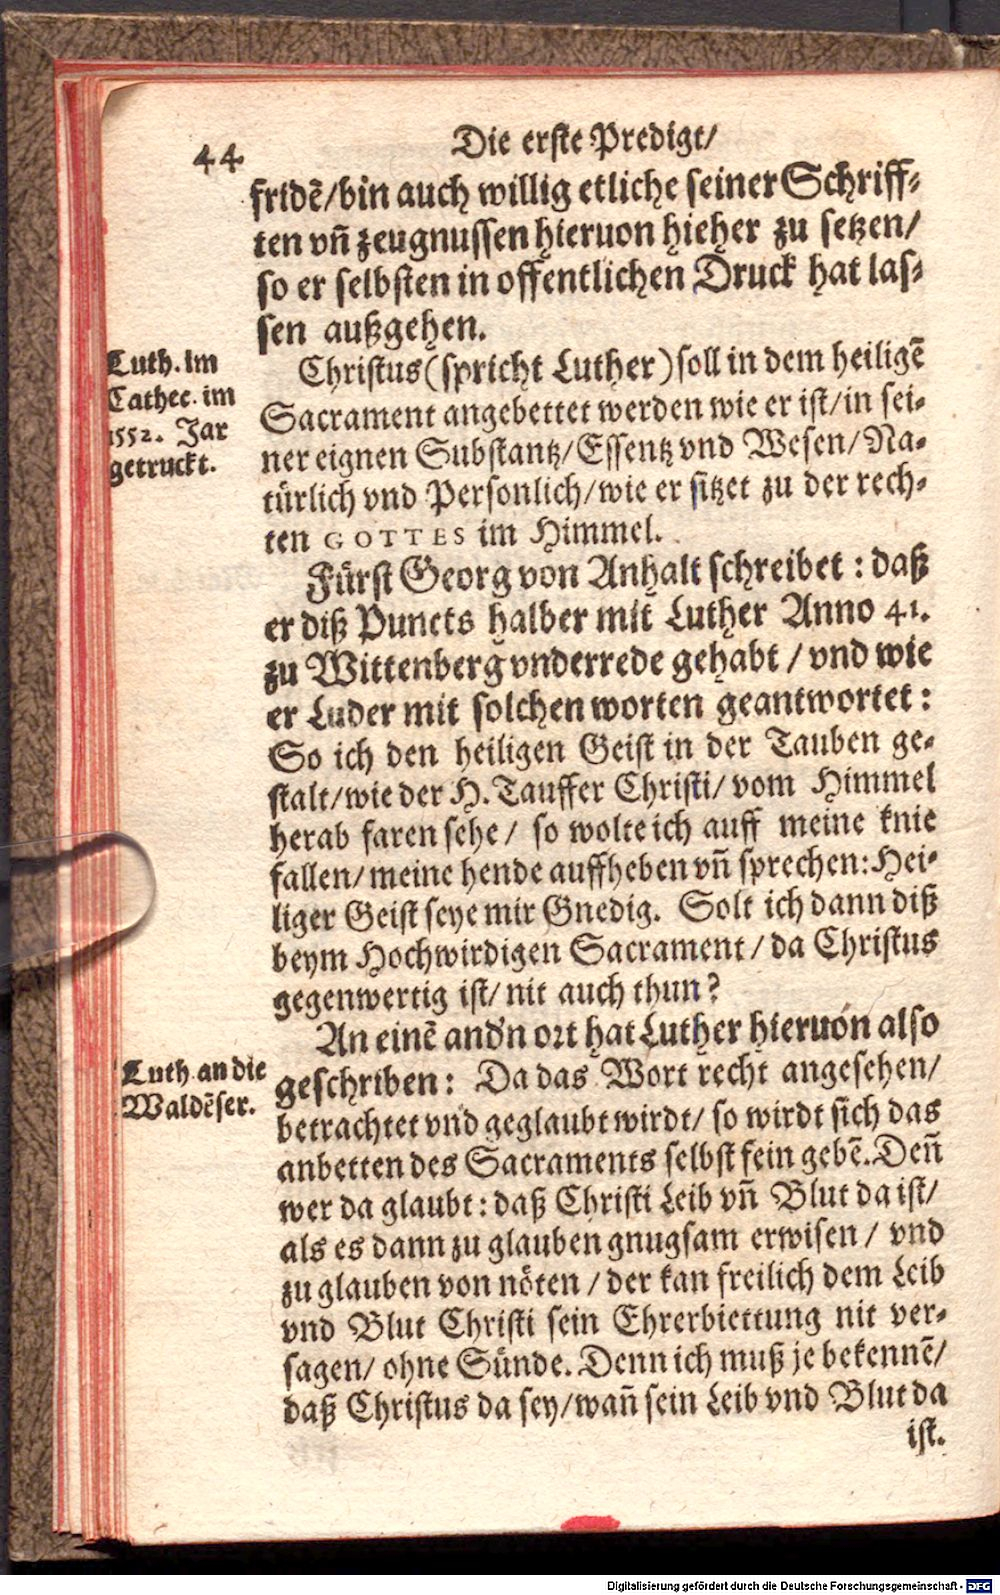 44
Die erste Predigt/
fridẽ/bin auch willig etliche seiner Schriff-
ten vñ zeugnussen hieruon hieher zu setzen/
so er selbsten in offentlichen Druck hat las-
sen außgehen.
Luth. im
Cathec. im
1552. Jar
getruckt.
Christus (spricht Luther) soll in dem heiligẽ
Sacrament angebettet werden wie er ist/in sei-
ner eignen Substantz/Essentz vnd Wesen/Na-
türlich vnd Personlich/wie er sitzet zu der rech-
ten GOTTES im Himmel.
Fürst Georg von Anhalt schreibet: daß
er diß Puncts halber mit Luther Anno 41.
zu Wittenberg vnderrede gehabt/vnd wie
er Luder mit solchen worten geantwortet:
So ich den heiligen Geist in der Tauben ge-
stalt/wie der H. Tauffer Christi/vom Himmel
herab faren sehe/ so wolte ich auff meine knie
fallen/meine hende auffheben vñ sprechen: Hei-
liger Geist seye mir Gnedig. Solt ich dann diß
beym Hochwirdigen Sacrament/da Christus
gegenwertig ist/nit auch thun?
An einẽ and'n ort hat Luther hieruon also
Luth. an die
Waldẽser.
geschriben: Da das Wort recht angesehen/
betrachtet vnd geglaubt wirdt/so wirdt sich das
anbetten des Sacraments selbst fein gebẽ. Deñ
wer da glaubt: daß Christi Leib vñ Blut da ist/
als es dann zu glauben gnugsam erwisen/ vnd
zu glauben von nöten/der kan freilich dem Leib
vnd Blut Christi sein Ehrerbiettung nit ver-
sagen/ ohne Sünde. Denn ich muß je bekennẽ/
daß Christus da sey/wañ sein Leib vnd Blut da
ist.
Digitalisierung gefördert durch die Deutsche Forschungsgemeinschaft - DFG